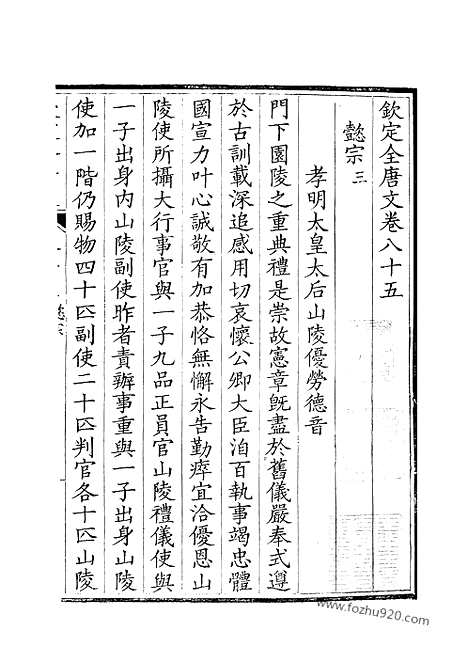 欽定全唐文卷八十五
懿宗三
孝明太皇太后山陵優勞德音
門下園陵之重典禮是崇故憲章既盡於舊儀嚴奉式遵
於古訓載深追感用切哀懷公卿大臣洎百執事竭忠體
國宣力叶心誠敬有加恭恪無懈永告勤瘁宜洽優恩山
陵使所攝大行事官與一子九品正員官山陵禮儀使與
一子出身內山陵副使昨者責辦事重與一子出身山陵
使加一階仍賜物四十匹副使二十匹判官各十匹山陵
www.fozhu920.com